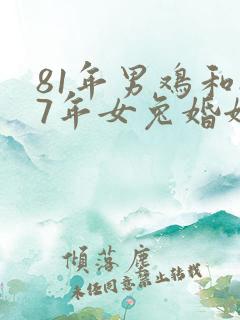 81年男鸡和
7年女兔婚
倾落尘
未经同意禁止转载